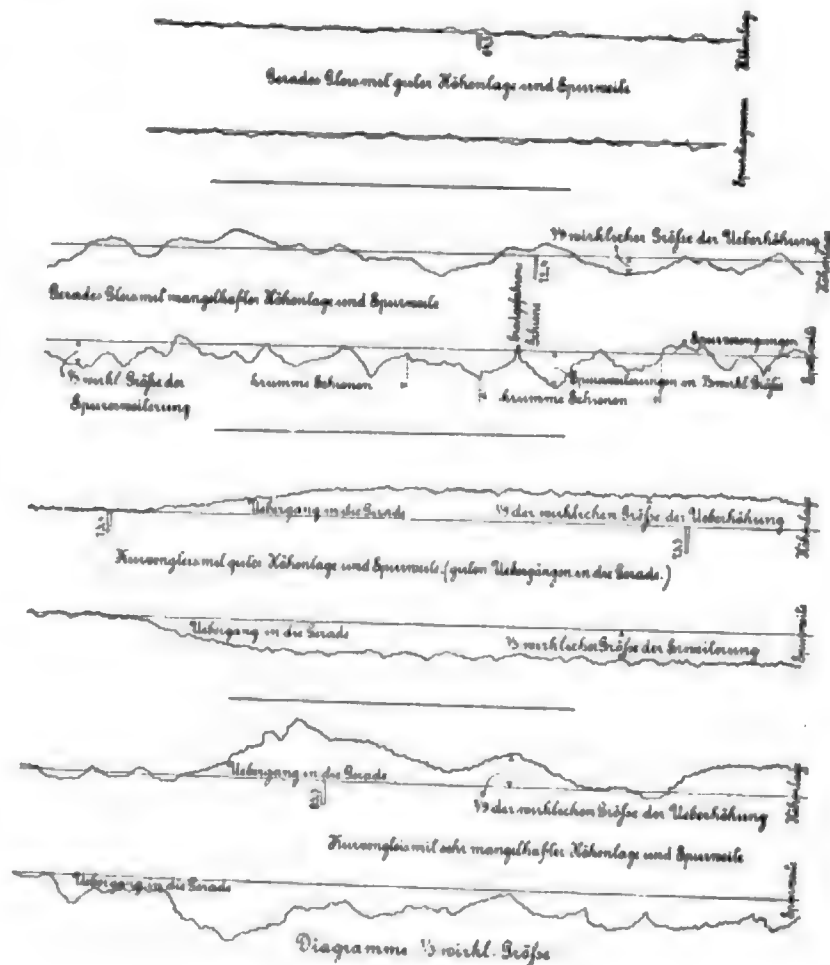 Höhenlag
Gerades Gleis mit guter Höhenlage und Spurweite
Spurdiagramm
1/9 wirklicher Größe der Ueberhöhung
Höhenlage
Gerades Gleis mit mangelhafter Höhenlage und Spurweite
Schiene
Spurverengungen
Spurweite
1/3 wirkl. Größe der
Spurerweiterung
krumme Schienen
Spurerweiterungen in 1/3 wirkl. Größe
krumme Schienen
Uebergang in die Gerade
1/9 der wirklichen Größe der Ueberhöhung
Höhenlage
Kurvengleis mit guter Höhenlage und Spurweite. (guten Uebergängen in die Gerade.)
Uebergang in die Gerade
1/3 wirklicher Größe der Erweiterung
Spurweite
Uebergang in die Gerade
1/9 der wirklichen Größe der Ueberhöhung
Höhenlage
Kurvengleis mit sehr mangelhafter Höhenlage und Spurweite
Uebergang in die Gerade
Spurweite
Diagramme 1/3 wirkl. Größe